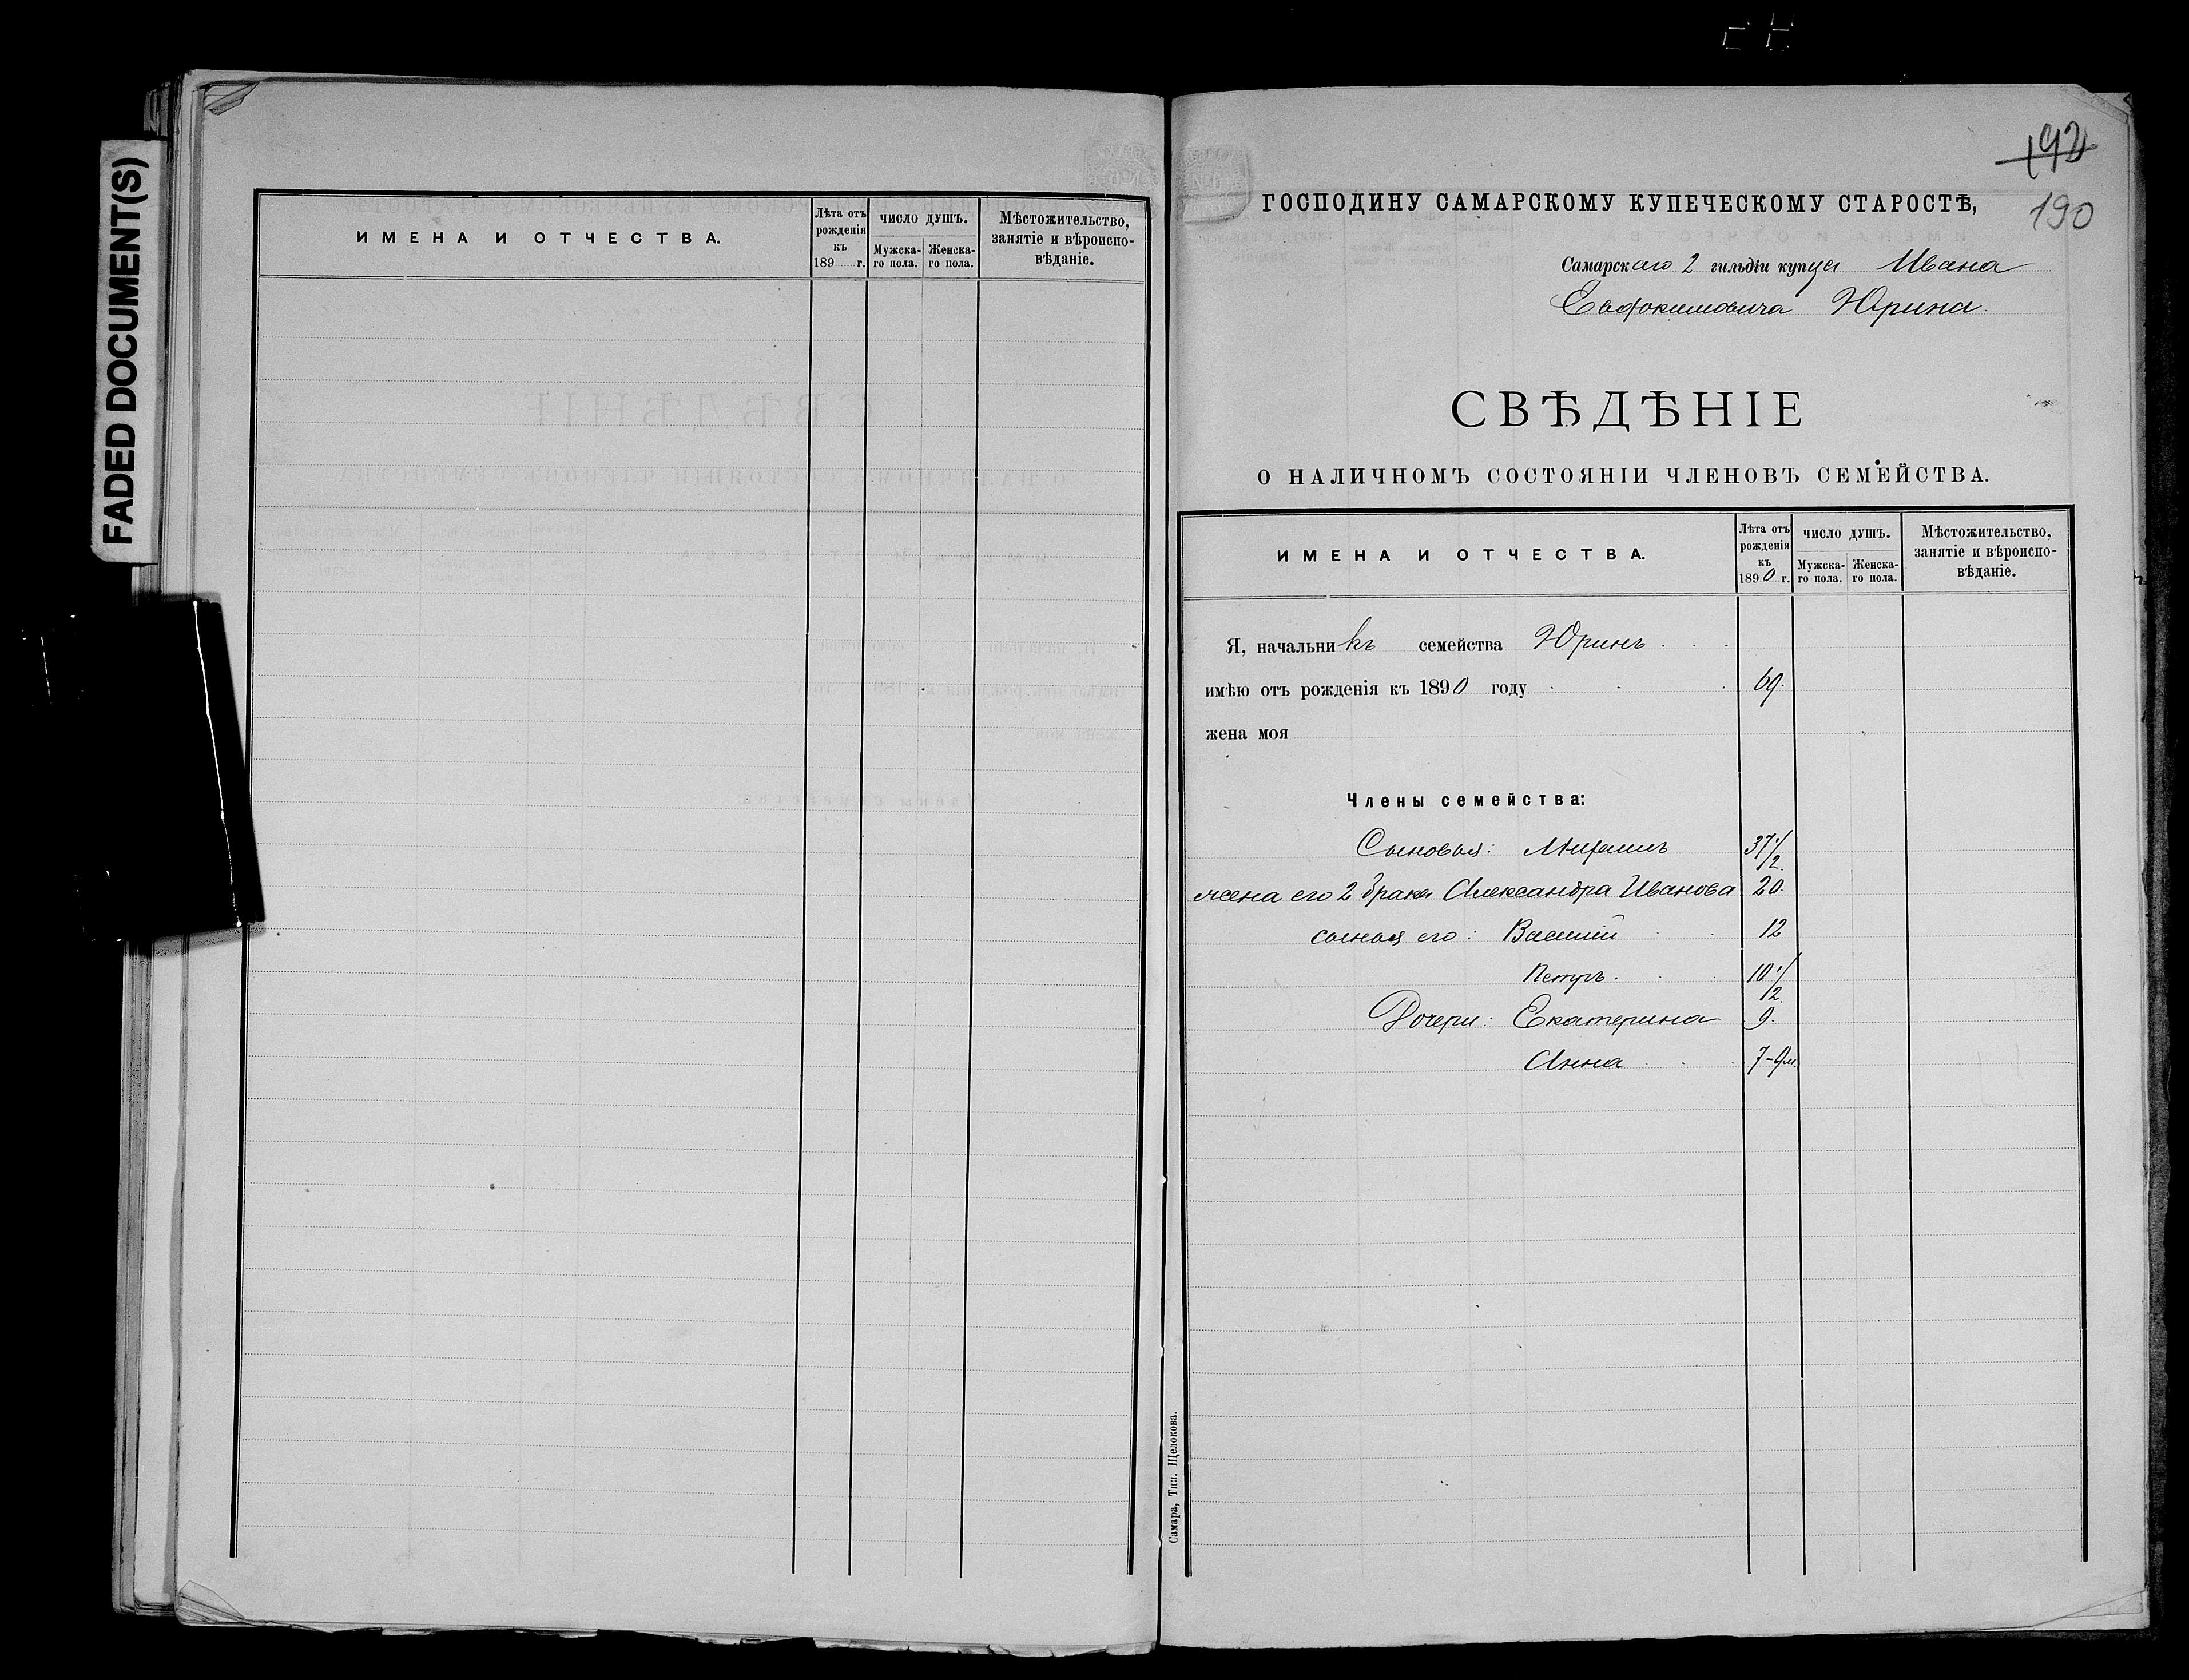 FADED DOCUMENT(S)
ИМЕНА И ОТЧЕСТВА.
Лѣта отъ рожденія къ 189 г.
ЧИСЛО ДУШЪ.
Мужска-го пола.
Женска-го пола.
Мѣстожительство, занятіе и вѣроиспо-вѣданіе.
192
190
ГОСПОДИНУ САМАРСКОМУ КУПЕЧЕСКОМУ СТАРОСТѢ,
Самарскаго 2 гильдіи купца Ивана
Евдокимовича Юрина.
СВѢДѢНІЕ
О НАЛИЧНОМЪ СОСТОЯНІИ ЧЛЕНОВЪ СЕМЕЙСТВА.
ИМЕНА И ОТЧЕСТВА.
Лѣта отъ рожденія къ 1890 г.
ЧИСЛО ДУШЪ.
Мужска-го пола.
Женска-го пола.
Мѣстожительство, занятіе и вѣроиспо-вѣданіе.
Я, начальникъ семейства Юринъ
имѣю отъ рожденія къ 1890 году 69.
жена моя
Члены семейства:
Сыновья: 37 1/2
жена его 2 брака Александра Иванова 20.
сыновья его: Василій 12
Петръ. 10 1/2.
Дочери: Екатерина 9.
Анна 7-9 м.
Самара, Тип. Щелокова.